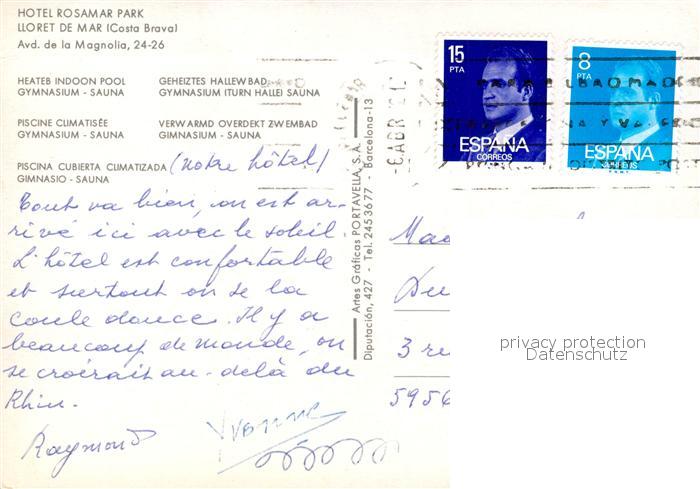 HOTEL ROSAMAR PARK
LLORET DE MAR (Costa Brava)
Avd. de la Magnolia, 24-26
HEATEB INDOON POOL
GYMNASIUM - SAUNA
GEHEIZTES HALLEWBAD
GYMNASIUM ITURN HALLEI SAUNA
PISCINE CLIMATISÉE
GYMNASIUM - SAUNA
VERWARMD OVERDEKT ZWEMBAD
GIMNASIUM - SAUNA
PISCINA CUBIERTA CLIMATIZADA (notre hôtel)
GIMNASIO - SAUNA
Tout va bien, on est ar-
rivé ici avec le soleil.
L'hôtel est confortable
et surtout on se la
coule douce. Il y a
beaucoup de monde, on
se croirait au-delà du
Rhin.
Raymond
Yvonne
Artes Gráficas PORTAVELLA, S.A.
Diputación, 427 - Tel. 2453677 - Barcelona-13
15
PTA
ESPAÑA
CORREOS
8
PTA
ESPAÑA
CORREOS
6 ABR
3 ru
privacy protection
Datenschutz